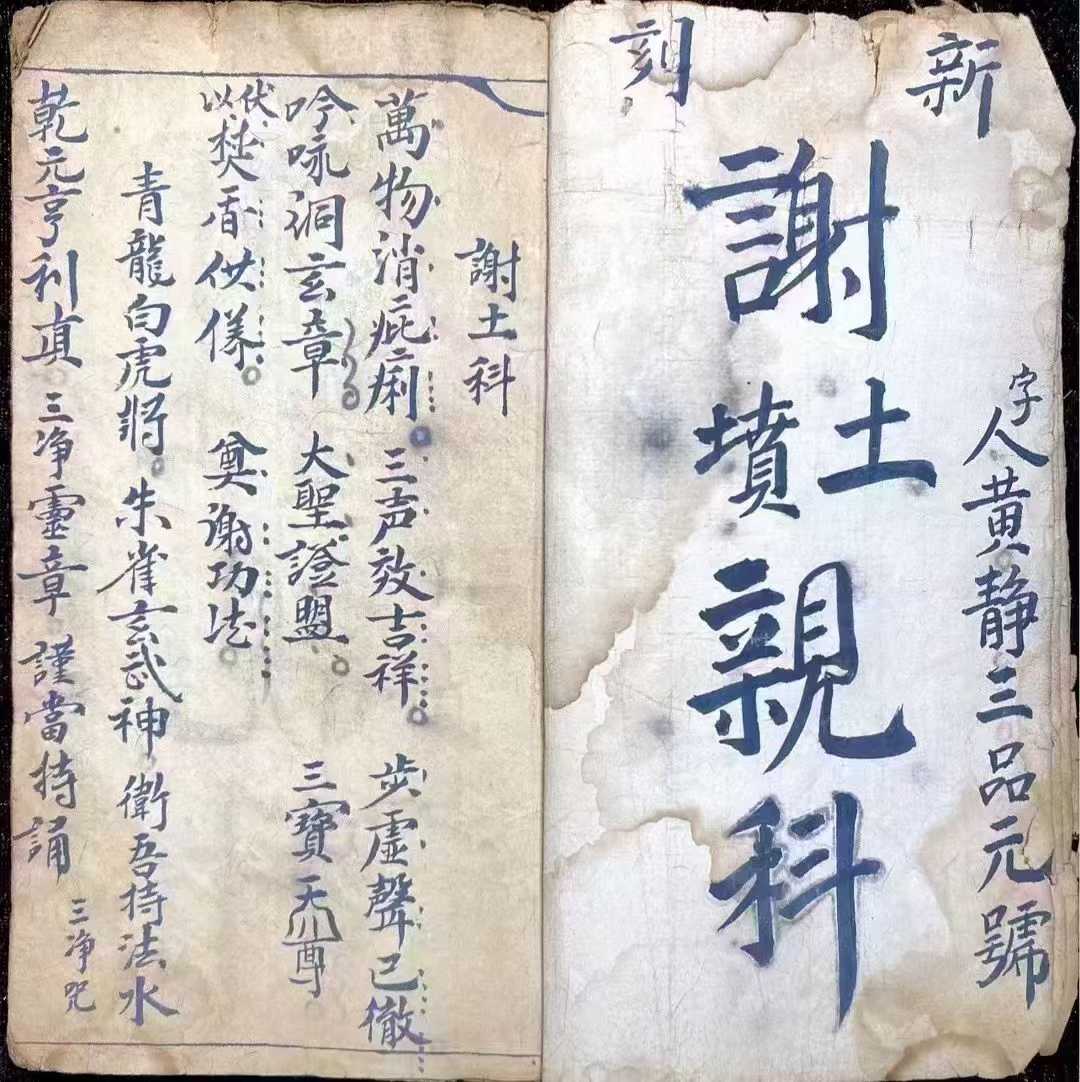 新刻
字人黄静三品元號
謝土
墳
親科
謝土科
萬物消疵痢。三声效吉祥。步虛聲已徹
吟咏洞玄章。大聖證盟。三寶天尊。
伏以焚香供儀。奠謝功法。
青龍白虎將。朱雀玄武神衛吾持法水
乾元亨利貞。三净靈章謹當持誦
三净咒